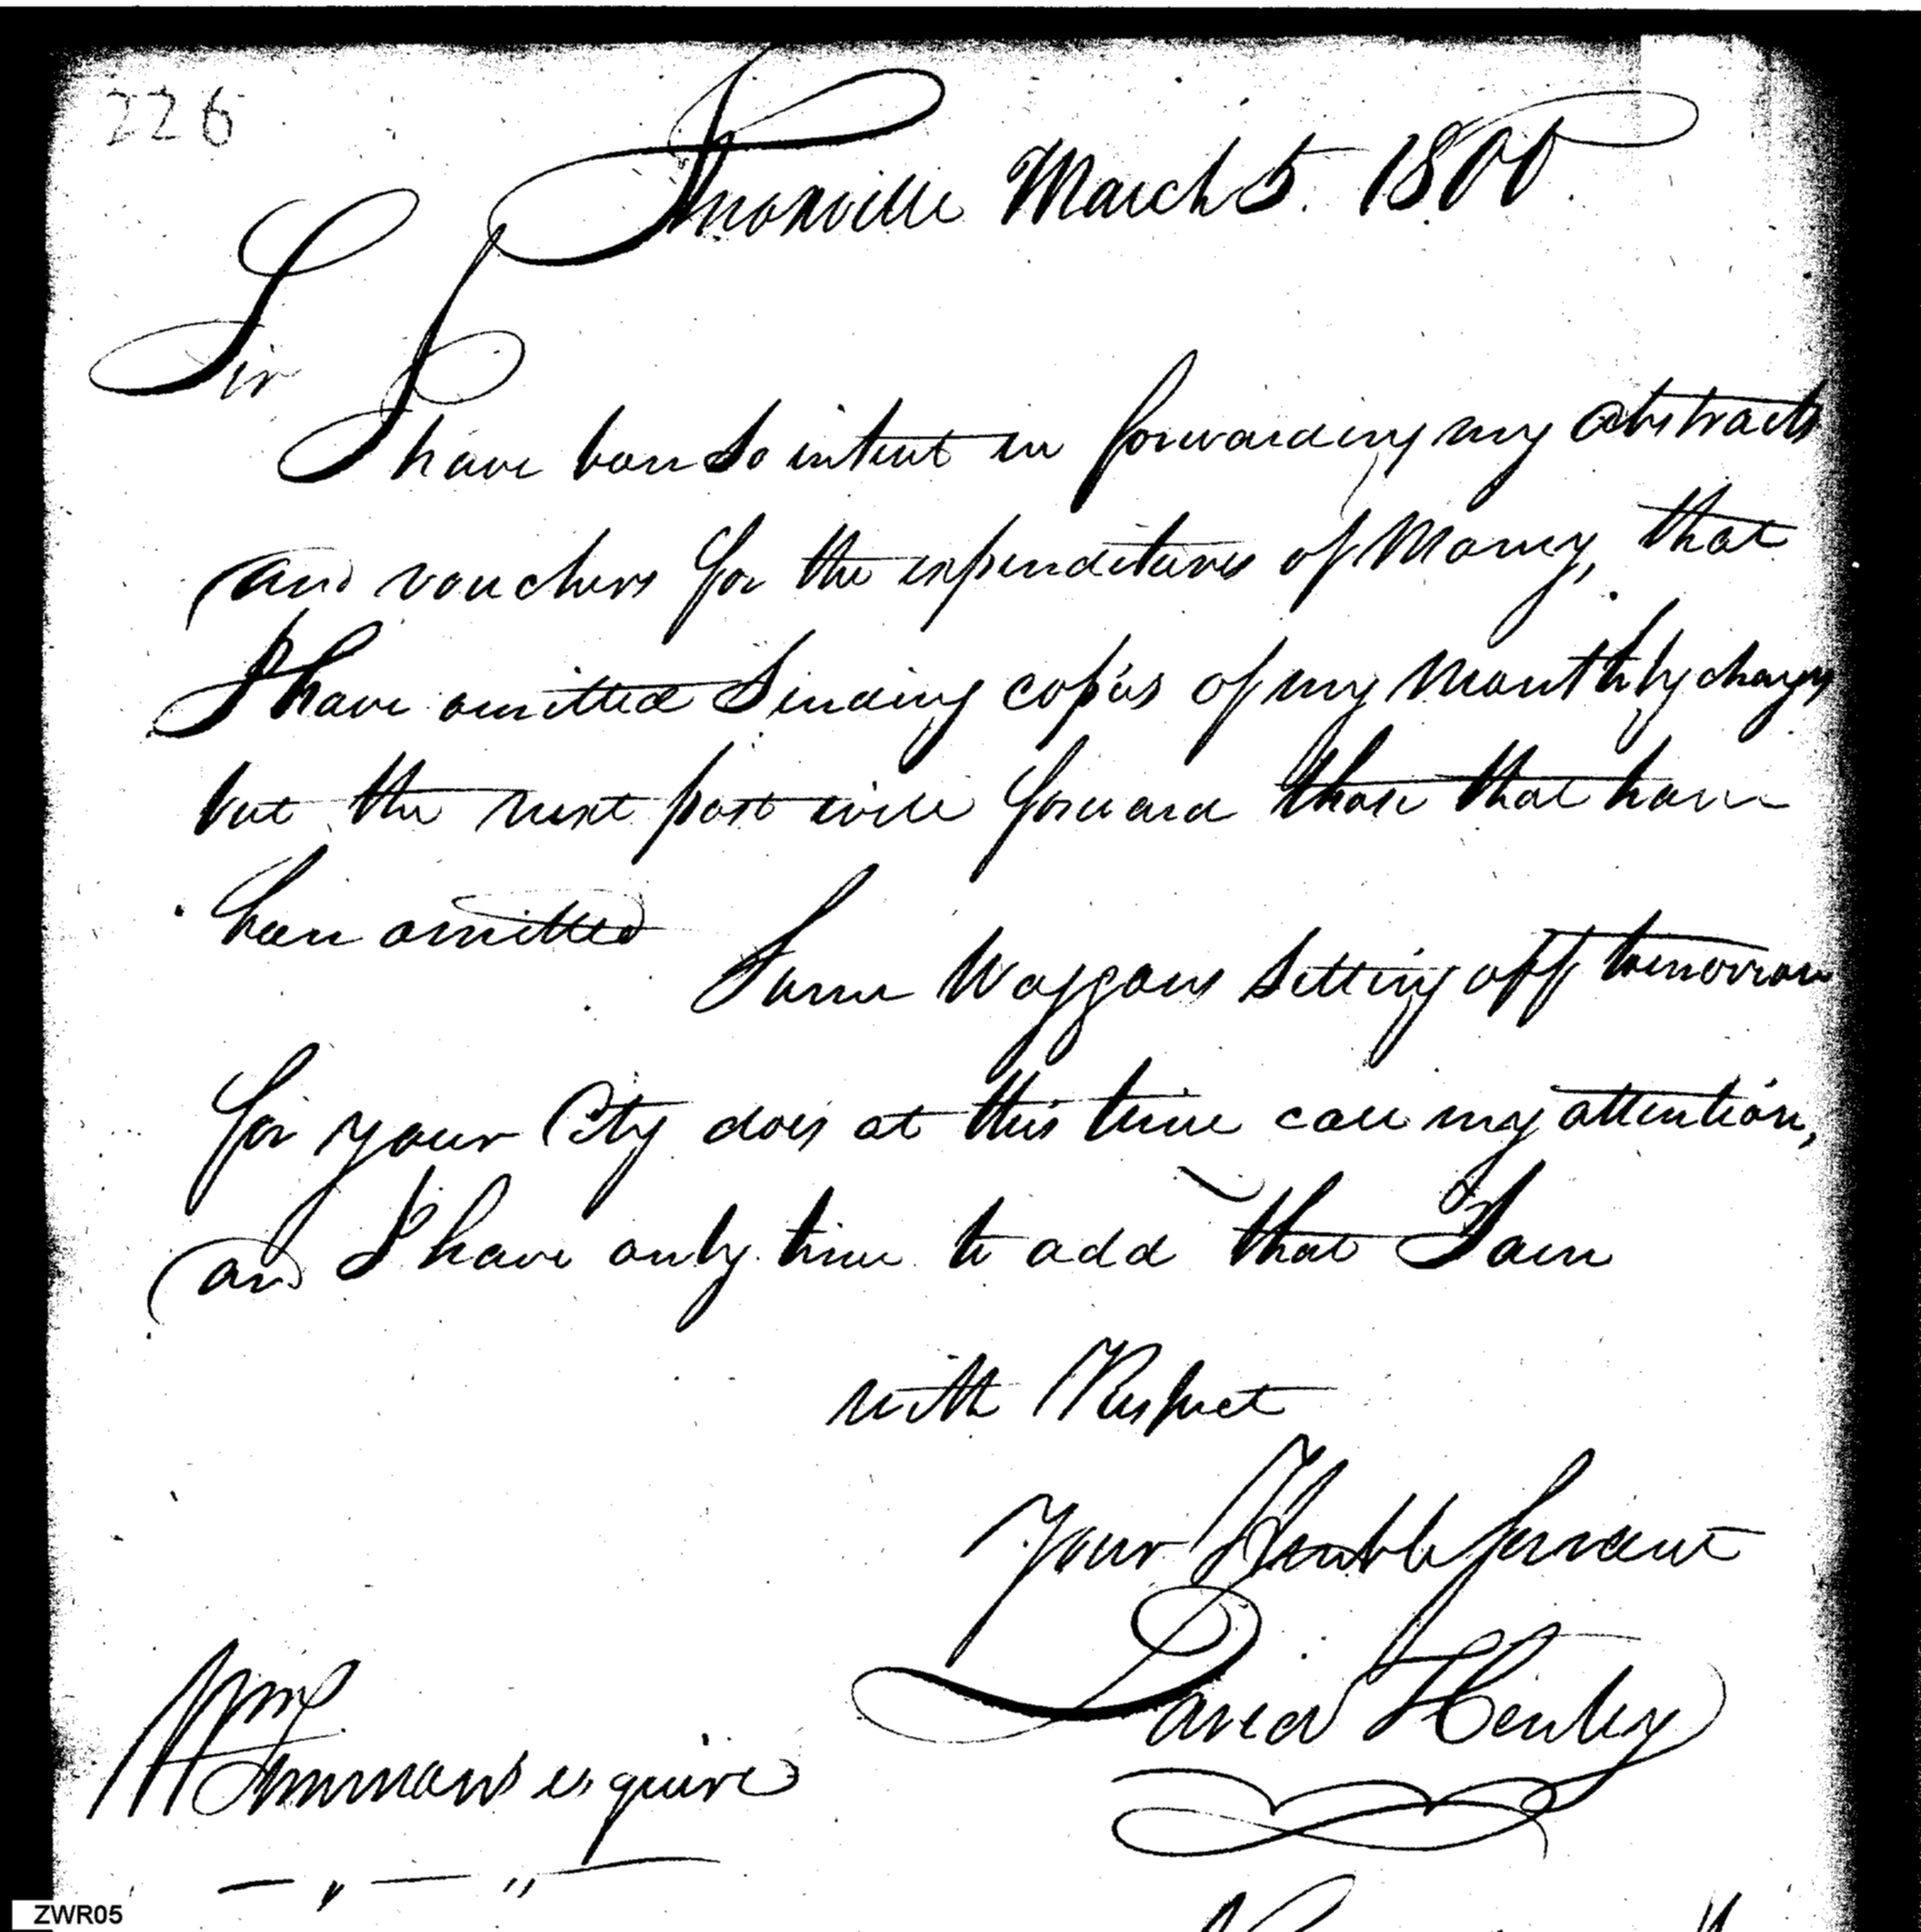 226
Knoxville March 5. 1800.
Sir
I have been so intent in forwarding my abstracts
and vouchers for the expenditures of Money, that
I have omitted Sending copies of my Monthly charges
but the next post will forward those that have
been omitted
Some Waggons setting off tomorrow
for your City does at this time call my attention,
and I have only time to add that I am
with Respect
Your Humble Servant
David Henley
Wm
Simmons esquire
ZWR05